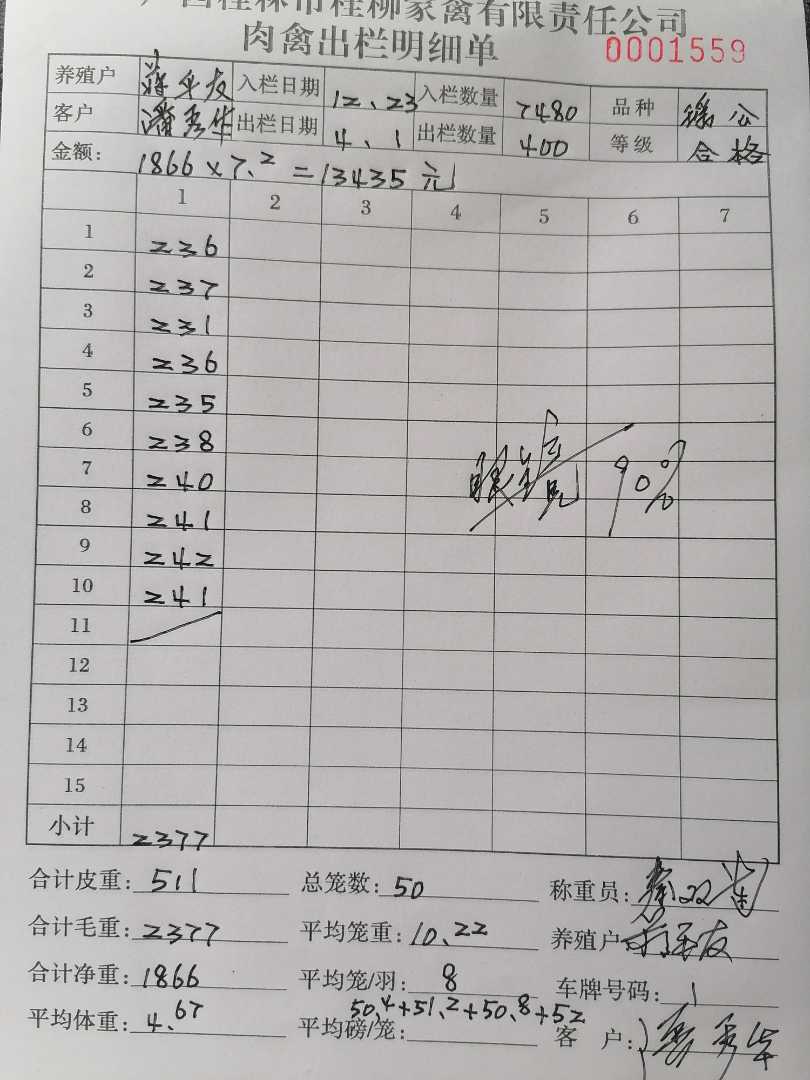 广西桂林市桂柳家禽有限责任公司
肉禽出栏明细单 0001559
养殖户 蒋平友 入栏日期 12、23 入栏数量 7480 品种
客户 潘秀华 出栏日期 4、1 出栏数量 400 等级 合格
金额: 1866×7.2=13435元
1 2 3 4 5 6 7
1 236
2 237
3 231
4 236
5 235
6 238
7 240
8 241
9 242
10 241
11
12
13
14
15
眼镜 90%
小计 2377
合计皮重: 511 总笼数: 50 称重员:
合计毛重: 2377 平均笼重: 10.22 养殖户 蒋平友
合计净重: 1866 平均笼/羽: 8 车牌号码: 1
50.4+51.2+50.8+52
平均体重: 4.67 平均磅/笼: 客 户: 潘秀华